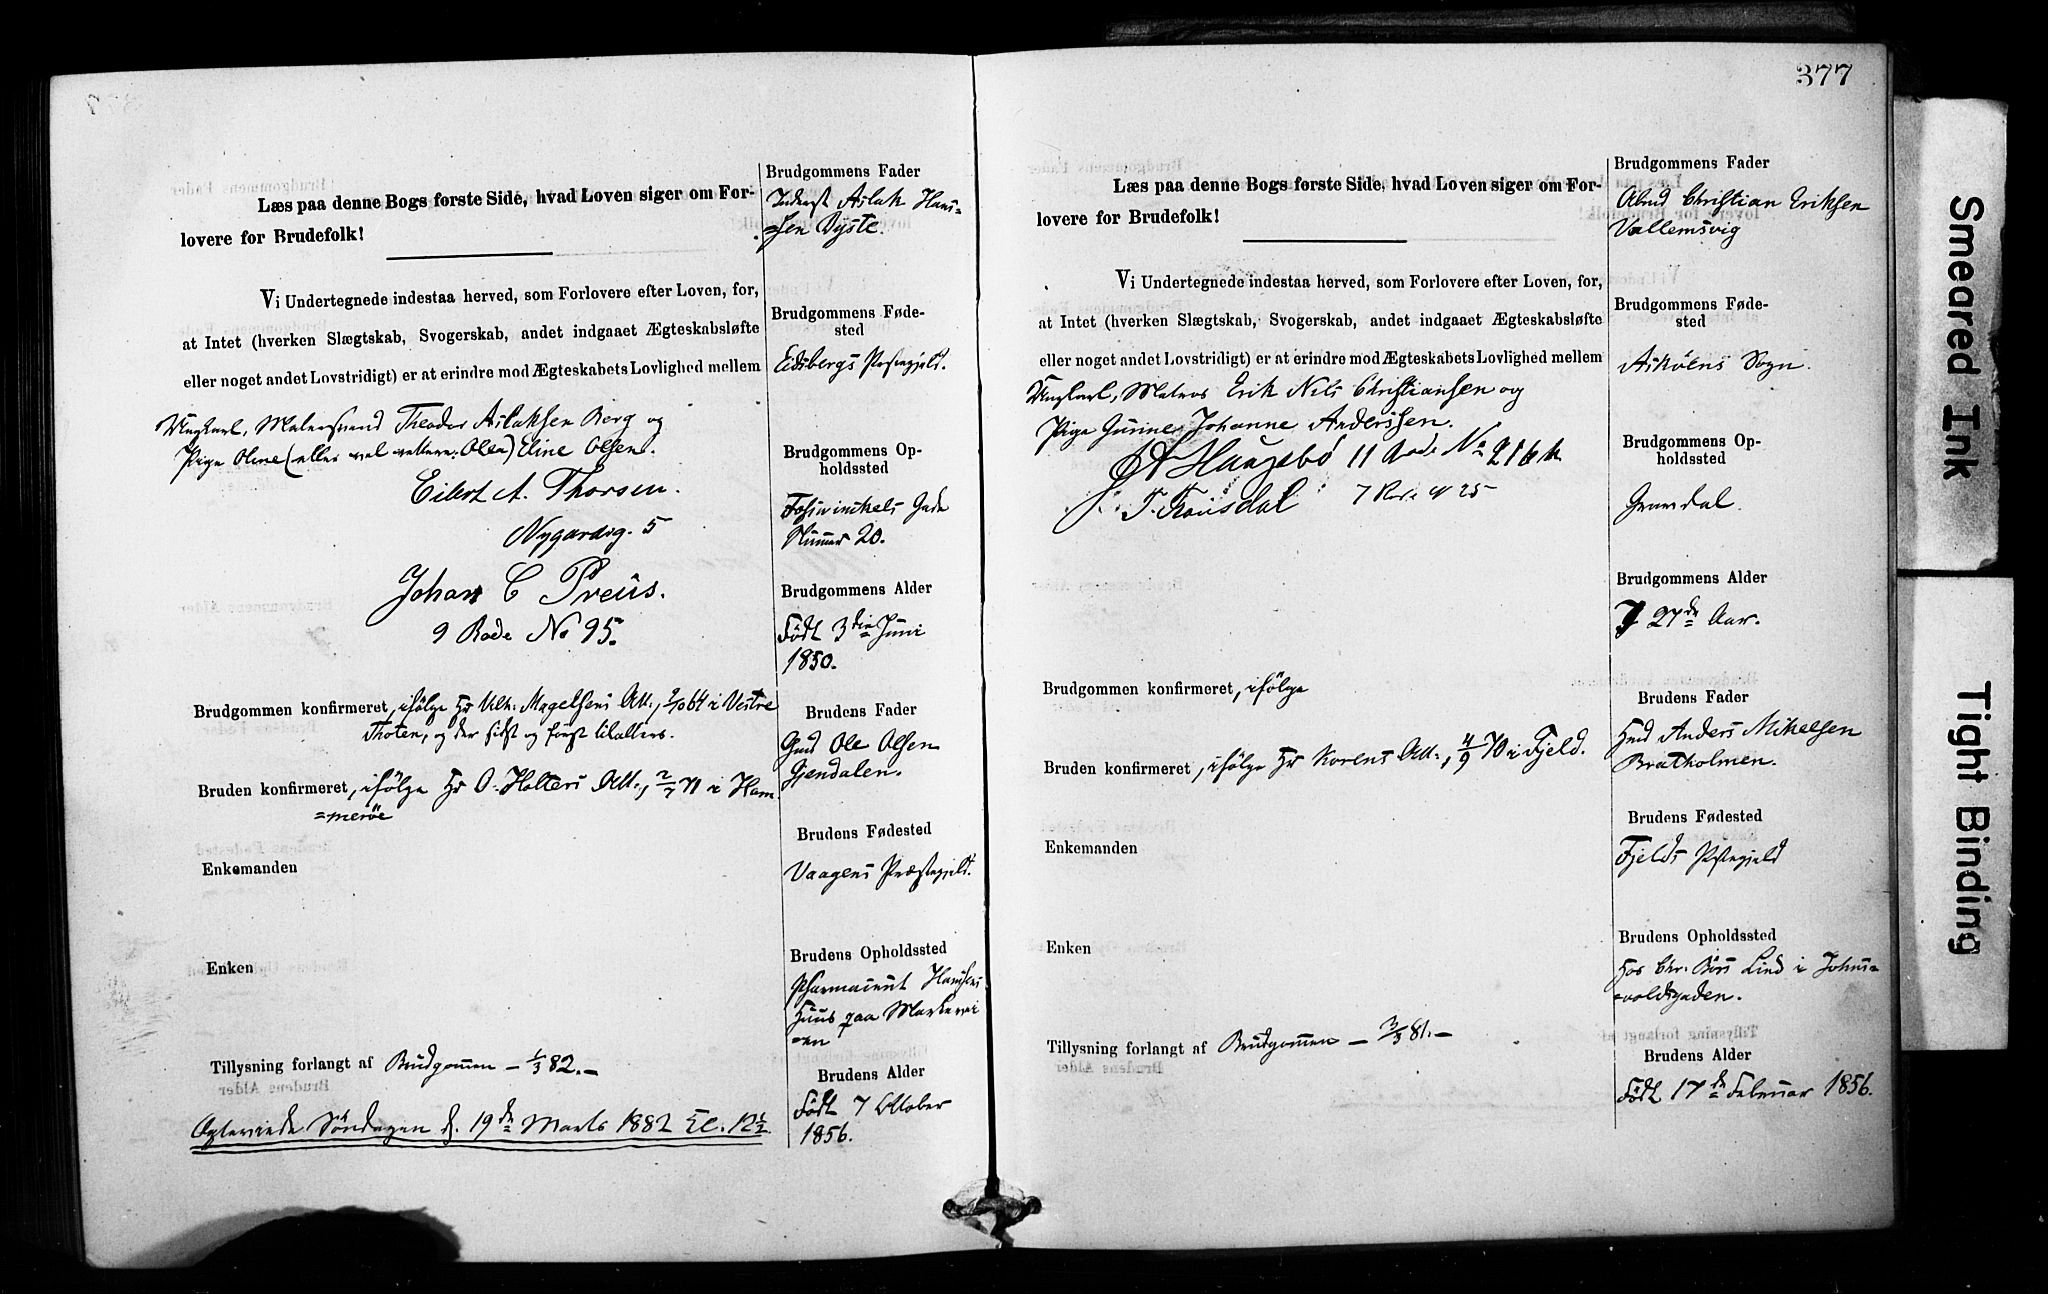 Læs paa denne Bogs første Side, hvad Loven siger om For-
lovere for Brudefolk!
Vi Undertegnede indestaa herved, som Forlovere efter Loven, for,
at Intet (hverken Slægtskab, Svogerskab, andet indgaaet Ægteskabsløfte
eller noget andet Lovstridigt) er at erindre mod Ægteskabets Lovlighed mellem
Ungkarl, Malersvend Theodor Aslaksen Berg og
Pige Oline (eller vel rettere: Olea) Eline Olsen.
Eilert A. Thorsen.
Nygardsg. 5
Johan C Preüs.
9 Rode No 95.
Brudgommen konfirmeret, ifølge Hr Vilh: Magelsens Att:, 2/10 64 i Vestre
Thoten, og der sidst og
Bruden konfirmeret, ifølge Hr O. Holters Att:, 2/7 71 i Ham
=merøe
Enkemanden
Enken
Tillysning forlangt af Brudgommen – 1/3 82. –
Ægtevinde Søndagen d. 19de Marts 1882 Kl. 12½
Brudgommens Fader
Inderst Aslak Han=
=sen Dyste.
Brudgommens Føde-
sted
Eidsbergs Præstegjeld.
Brudgommens Op-
holdssted
Fosswinckels Gade
Numer 20.
Brudgommens Alder
Født 3die Juni
1850.
Brudens Fader
Gmd Ole Olsen
Gjendalen.
Brudens Fødested
Vaagens Præstegjeld.
Brudens Opholdssted
Pharmaceut Hansens
Huus paa Markevei
=en
Brudens Alder
Født 7 Oktober
1856.
377
Læs paa denne Bogs første Side, hvad Loven siger om For-
lovere for Brudefolk!
Vi Undertegnede indestaa herved, som Forlovere efter Loven, for,
at Intet (hverken Slægtskab, Svogerskab, andet indgaaet Ægteskabsløfte
eller noget andet Lovstridigt) er at erindre mod Ægteskabets Lovlighed mellem
Ungkarl, Matros Erik Nils Christiansen og
Pige Gurine Johanne Anderssen.
A Haugsbø 11 Rode No 216
T. 7 Rode 25
Brudgommen konfirmeret, ifølge
Bruden konfirmeret, ifølge Hr Korens Att:, 4/9 70 i Fjeld.
Enkemanden
Enken
Tillysning forlangt af Brudgommen – 3/3 81. –
Brudgommens Fader
Christian Eriksen
Vallemsvig
Brudgommens Føde-
sted
Askøens Sogn.
Brudgommens Op-
holdssted
Gravdal.
Brudgommens Alder
27de Aar.
Brudens Fader
Hmd Anders Mikelsen
Bratholmen.
Brudens Fødested
Fjelds Pstegjeld
Brudens Opholdssted
Hos Chr. Børs Lind i Johns=
=voldsgaden.
Brudens Alder
Født 17de Februar 1856.
Smeared Ink
Tight Binding